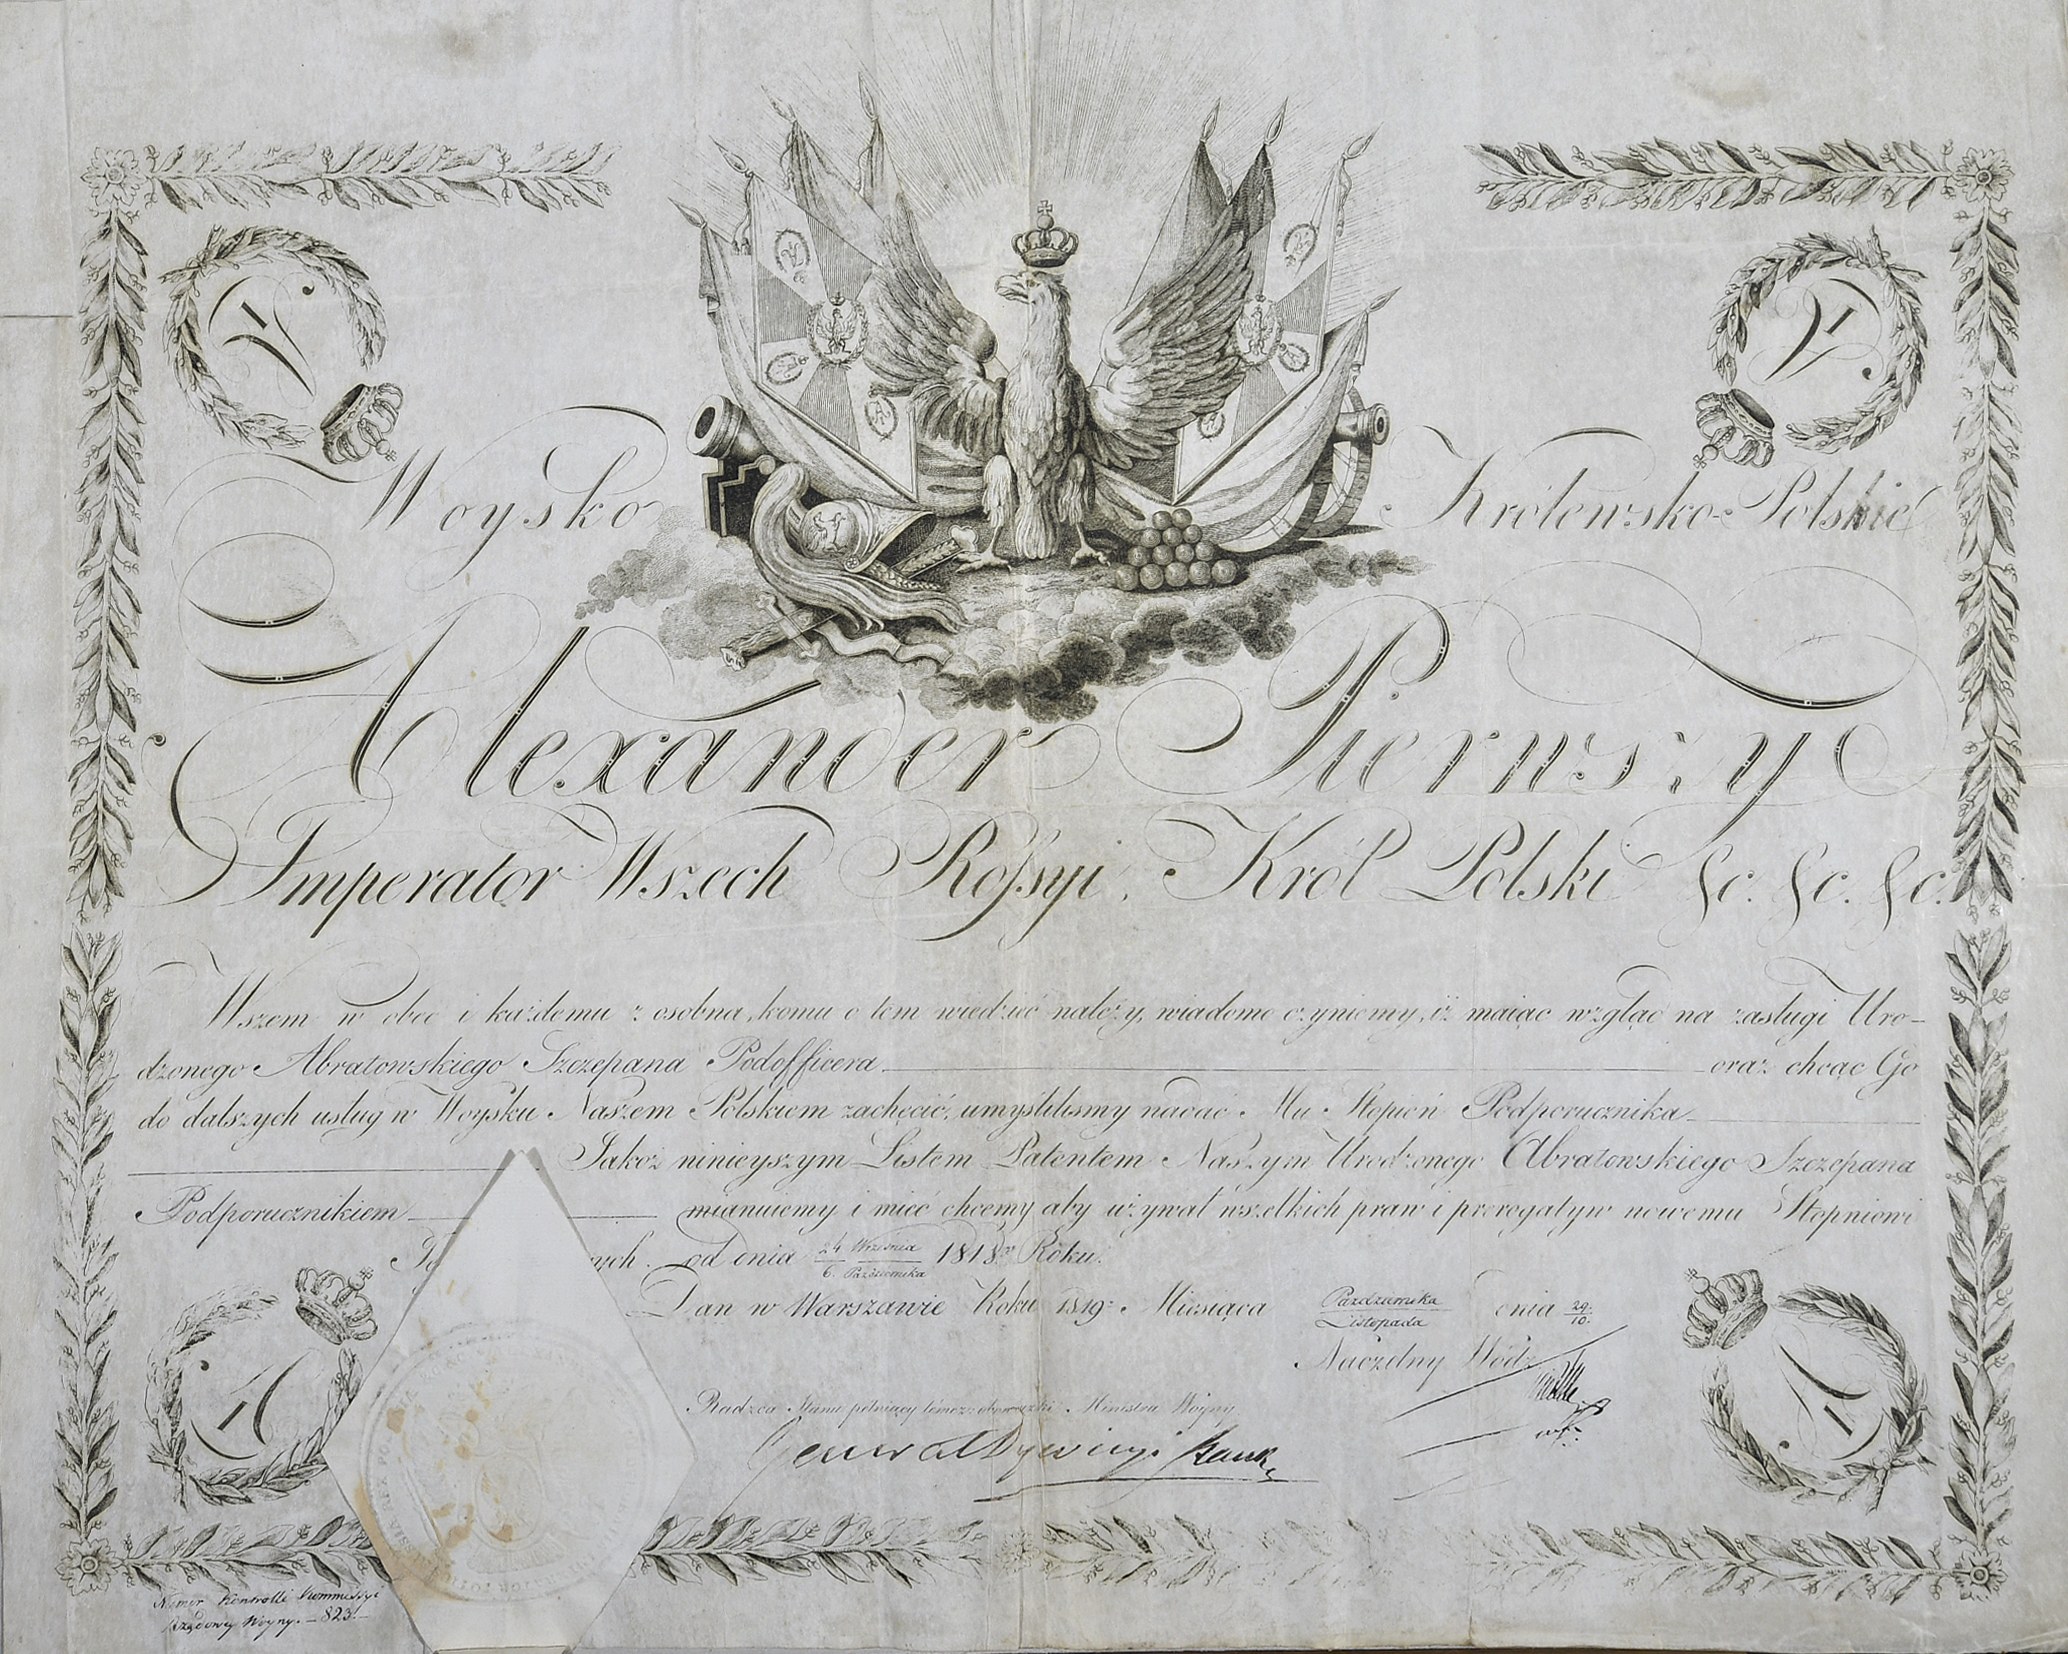 Woysko Królewsko-Polskie
Alexander Pierwszy
Imperator Wszech Rossyi, Król Polski &c. &c. &c.
Wszem w obec i każdemu z osobna, komu o tem wiedzieć należy, wiadomo czyniemy, iż maiąc wzgląd na zasługi Uro-
dzonego Abratowskiego Szczepana Podofficera oraz chcąc Go
do dalszych usług w Woysku Naszem Polskiem zachęcić, umyśliliśmy nadać Mu Stopień Podporucznika
Jakoż ninieyszym Listem Patentem Naszym Urodzonego Abratowskiego Szczepana
Podporucznikiem mianuiemy i mieć chcemy aby używał wszelkich praw i prerogatyw nowemu Stopniowi
ych. od dnia 24 Września / 6. Października 1818go Roku.
Dan w Warszawie Roku 1819. Miesiąca Października / Listopada dnia 29. / 10.
Naczelny Wódz
Radzca Stanu pełniący tymcz: obowiązki Ministra Woyny
Generał Dywizyi Hauke
Numer Kontrolli Kommissyi
Rządowey Woyny. — 823. —